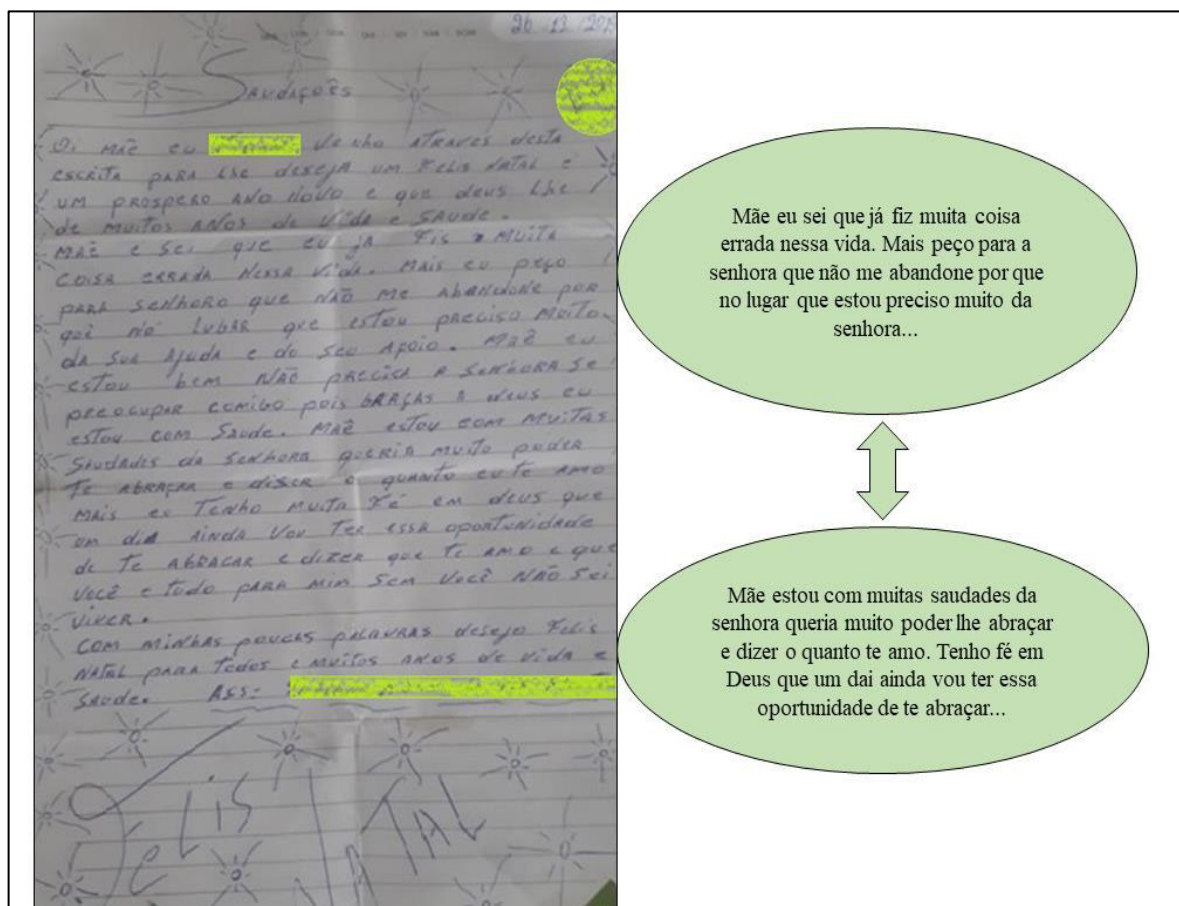 26 / 12 / 201
SAUDAÇOÊS
OI MÃE EU VENHO ATRAVES DESTA
ESCRITA PARA LHE DESEJA UM FELIS NATAL E
UM PROSPERO ANO NOVO E QUE DEUS LHE
DE MUITOS ANOS DE VIDA E SAUDE.
MÃE E SEI QUE EU JA FIS MUITA
COISA ERRADA NESSA VIDA. MAIS EU PEÇO
PARA SENHORO QUE NÃO ME ABANDONE POR
QUE NO LUGAR QUE ESTOU PRECISO MUITO
DA SUA AJUDA E DO SEU APOIO. MÃE EU
ESTOU BEM NÃO PRECISA A SENHORA SE
PREOCUPAR COMIGO POIS GRAÇAS A DEUS EU
ESTOU COM SAUDE. MÃE ESTOU COM MUITAS
SAUDADES DA SENHORA QUERIA MUITO PODER
TE ABRAÇAR E DISER O QUANTO EU TE AMO
MAIS EU TENHO MUITA FÉ EM DEUS QUE
UM DIA AINDA VOU TER ESSA OPORTUNIDADE
DE TE ABRACAR E DIZER QUE TE AMO E QUE
VOCÊ E TUDO PARA MIM SEM VOCÊ NÃO SEI
VIVER.
COM MINHAS POUCAS PALAVRAS DESEJO FELIS
NATAL PARA TODOS E MUITOS ANOS DE VIDA E
SAUDE. ASS:
FELIS NATAL
Mãe eu sei que já fiz muita coisa
errada nessa vida. Mais peço para a
senhora que não me abandone por que
no lugar que estou preciso muito da
senhora...
Mãe estou com muitas saudades da
senhora queria muito poder lhe abraçar
e dizer o quanto te amo. Tenho fé em
Deus que um dai ainda vou ter essa
oportunidade de te abraçar...